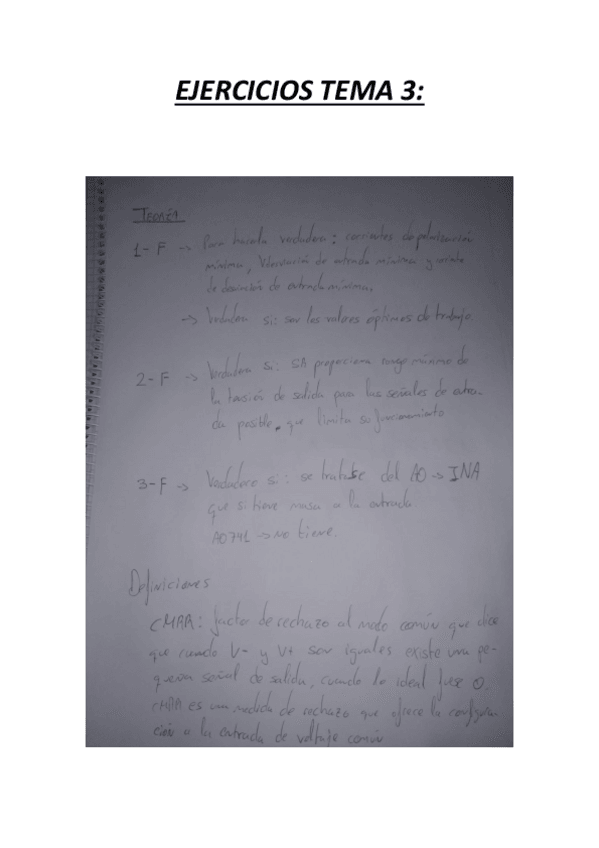 EJERCICIOS TEMA 3:
TEMA 1
1- F → Para hacerla verdadera: corrientes de polarización
mínima, de entrada mínima y
de de entrada mínima.
→ Verdadera si: son los valores óptimos de trabajo
2- F → Verdadera si: SR proporciona rango máximo de
la tensión de salida para las señales de entra-
da posible, que limita su funcionamiento
3- F → Verdadero si: se tratase del AO → INA
que si tiene masa a la entrada
AO741 → no tiene.
Definiciones
CMRR: factor de rechazo al modo común que dice
que cuando V- y V+ son iguales existe una pe-
queña señal de salida, cuando lo ideal fuse 0.
CMRR es una medida de rechazo que ofrece la configura-
ción a la entrada de voltaje común